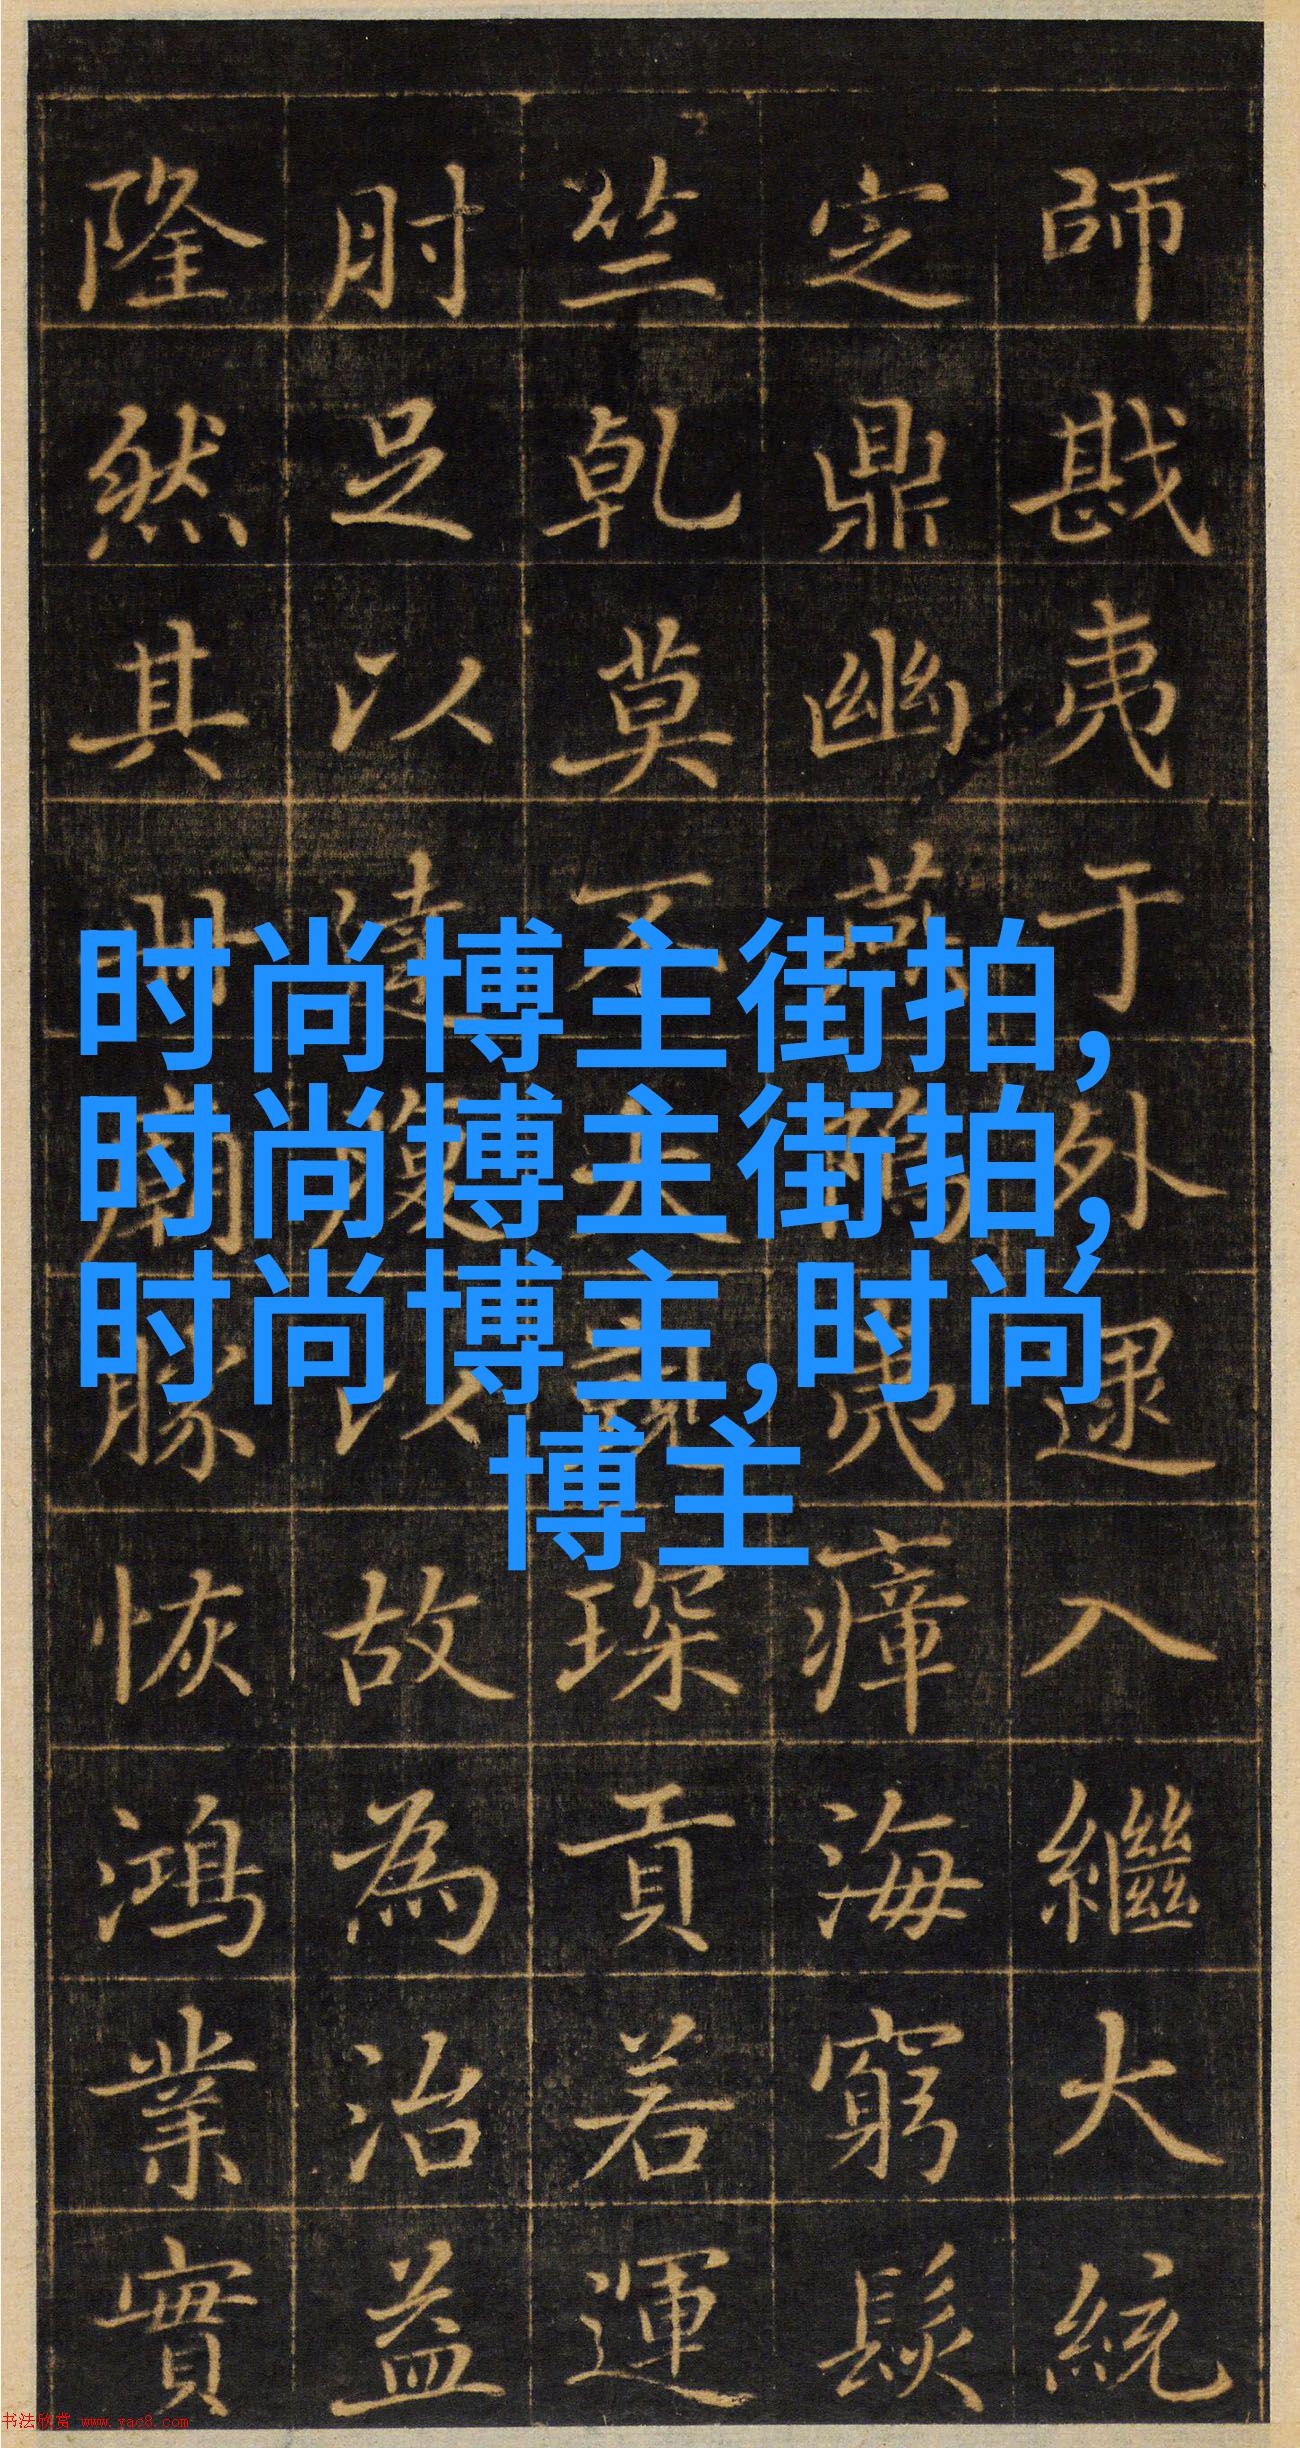 師戡夷于外逮入繼大統
定鼎幽燕夷瘴海窮髮
竺乾莫不琛貢若運
肘足以以故為治益
隆然其廟勝恢鴻業實
时尚博主街拍,
时尚博主街拍,
时尚博主,时尚
博主
书法欣赏 www.yac8.com